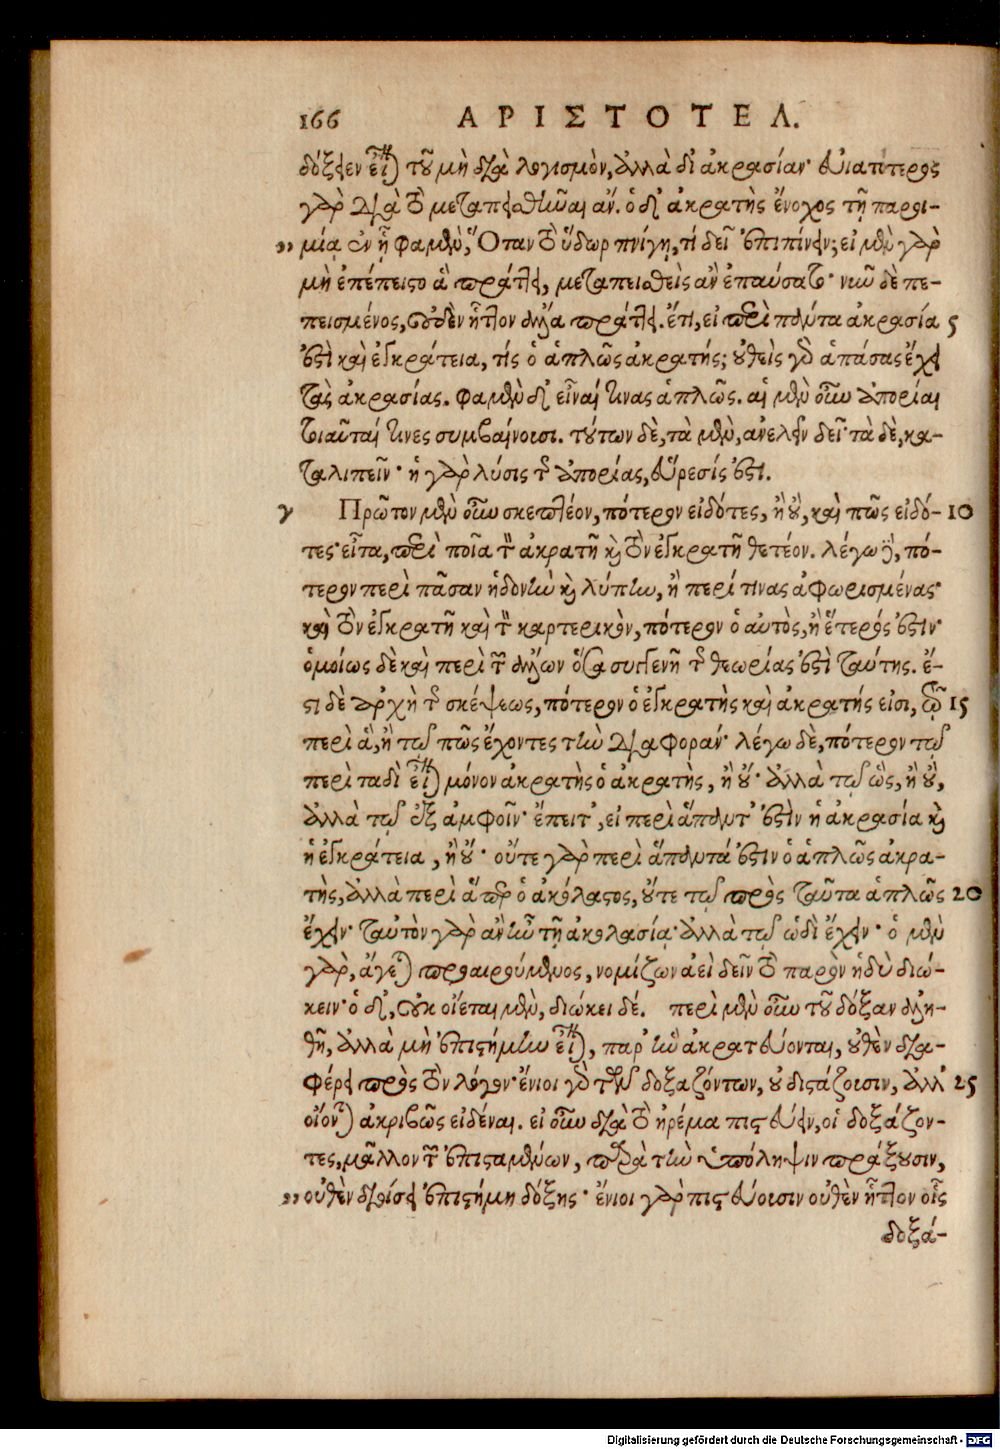 166 ΑΡΙΣΤΟΤΕΛ.
δόξειεν εἶναι τοῦ μὴ διὰ λογισμὸν, ἀλλὰ δι' ἀκρασίαν· εὐιατότερος
γὰρ διὰ τὸ μεταπεισθῆναι ἄν. ὁ δ' ἀκρατὴς ἔνοχος τῇ παροι-
„ μίᾳ ἐν ᾗ φαμὲν, Ὅταν τὸ ὕδωρ πνίγῃ, τί δεῖ ἐπιπίνειν; εἰ μὲν γὰρ
μὴ ἐπέπειστο ἃ πράττει, μεταπεισθεὶς ἂν ἐπαύσατο· νῦν δὲ πε-
πεισμένος, οὐδὲν ἧττον ἄλλα πράττει. ἔτι, εἰ περὶ πάντα ἀκρασία 5
ἐστὶ καὶ ἐγκράτεια, τίς ὁ ἁπλῶς ἀκρατής; οὐθεὶς γὰρ ἁπάσας ἔχει
τὰς ἀκρασίας. φαμὲν δ' εἶναί τινας ἁπλῶς. αἱ μὲν οὖν ἀπορίαι
τοιαῦταί τινες συμβαίνουσι. τούτων δὲ, τὰ μὲν, ἀνελεῖν δεῖ· τὰ δὲ, κα-
ταλιπεῖν· ἡ γὰρ λύσις τῆς ἀπορίας, εὕρεσίς ἐστι.
γ Πρῶτον μὲν οὖν σκεπτέον, πότερον εἰδότες, ἢ οὔ, καὶ πῶς εἰδό- 10
τες· εἶτα, περὶ ποῖα τὸν ἀκρατῆ καὶ τὸν ἐγκρατῆ θετέον. λέγω δὲ, πό-
τερον περὶ πᾶσαν ἡδονὴν καὶ λύπην, ἢ περί τινας ἀφωρισμένας·
καὶ τὸν ἐγκρατῆ καὶ τὸν καρτερικὸν, πότερον ὁ αὐτὸς, ἢ ἕτερός ἐστιν·
ὁμοίως δὲ καὶ περὶ τῶν ἄλλων ὅσα συγγενῆ τῆς θεωρίας ἐστὶ ταύτης. ἔ-
στι δὲ ἀρχὴ τῆς σκέψεως, πότερον ὁ ἐγκρατὴς καὶ ἀκρατής εἰσι, τῷ 15
περὶ ἃ, ἢ τῷ πῶς ἔχοντες τὴν διαφοράν· λέγω δὲ, πότερον τῷ
περὶ ταδὶ εἶναι μόνον ἀκρατὴς ὁ ἀκρατὴς, ἢ οὔ· ἀλλὰ τῷ ὣς, ἢ οὔ,
ἀλλὰ τῷ ἐξ ἀμφοῖν· ἔπειτ', εἰ περὶ ἅπαντ' ἐστὶν ἡ ἀκρασία καὶ
ἡ ἐγκράτεια, ἢ οὔ· οὔτε γὰρ περὶ ἅπαντά ἐστιν ὁ ἁπλῶς ἀκρα-
τὴς, ἀλλὰ περὶ ἅπερ ὁ ἀκόλαστος, οὔτε τῷ πρὸς ταῦτα ἁπλῶς 20
ἔχειν· ταὐτὸν γὰρ ἂν ἦν τῇ ἀκολασίᾳ· ἀλλὰ τῷ ὡδὶ ἔχειν· ὁ μὲν
γὰρ, ἄγεται προαιρούμενος, νομίζων ἀεὶ δεῖν τὸ παρὸν ἡδὺ διώ-
κειν· ὁ δ', οὐκ οἴεται μὲν, διώκει δέ. περὶ μὲν οὖν τοῦ δόξαν ἀλη-
θῆ, ἀλλὰ μὴ ἐπιστήμην εἶναι, παρ' ἣν ἀκρατεύονται, οὐθὲν δια-
φέρει πρὸς τὸν λόγον· ἔνιοι γὰρ τῶν δοξαζόντων, οὐ διστάζουσιν, ἀλλ' 25
οἴονται ἀκριβῶς εἰδέναι. εἰ οὖν διὰ τὸ ἠρέμα πιστεύειν, οἱ δοξάζον-
τες, μᾶλλον τῶν ἐπισταμένων, παρὰ τὴν ὑπόληψιν πράξουσιν,
„ οὐθὲν διοίσει ἐπιστήμη δόξης· ἔνιοι γὰρ πιστεύουσιν οὐθὲν ἧττον οἷς
δοξά-
Digitalisierung gefördert durch die Deutsche Forschungsgemeinschaft - DFG